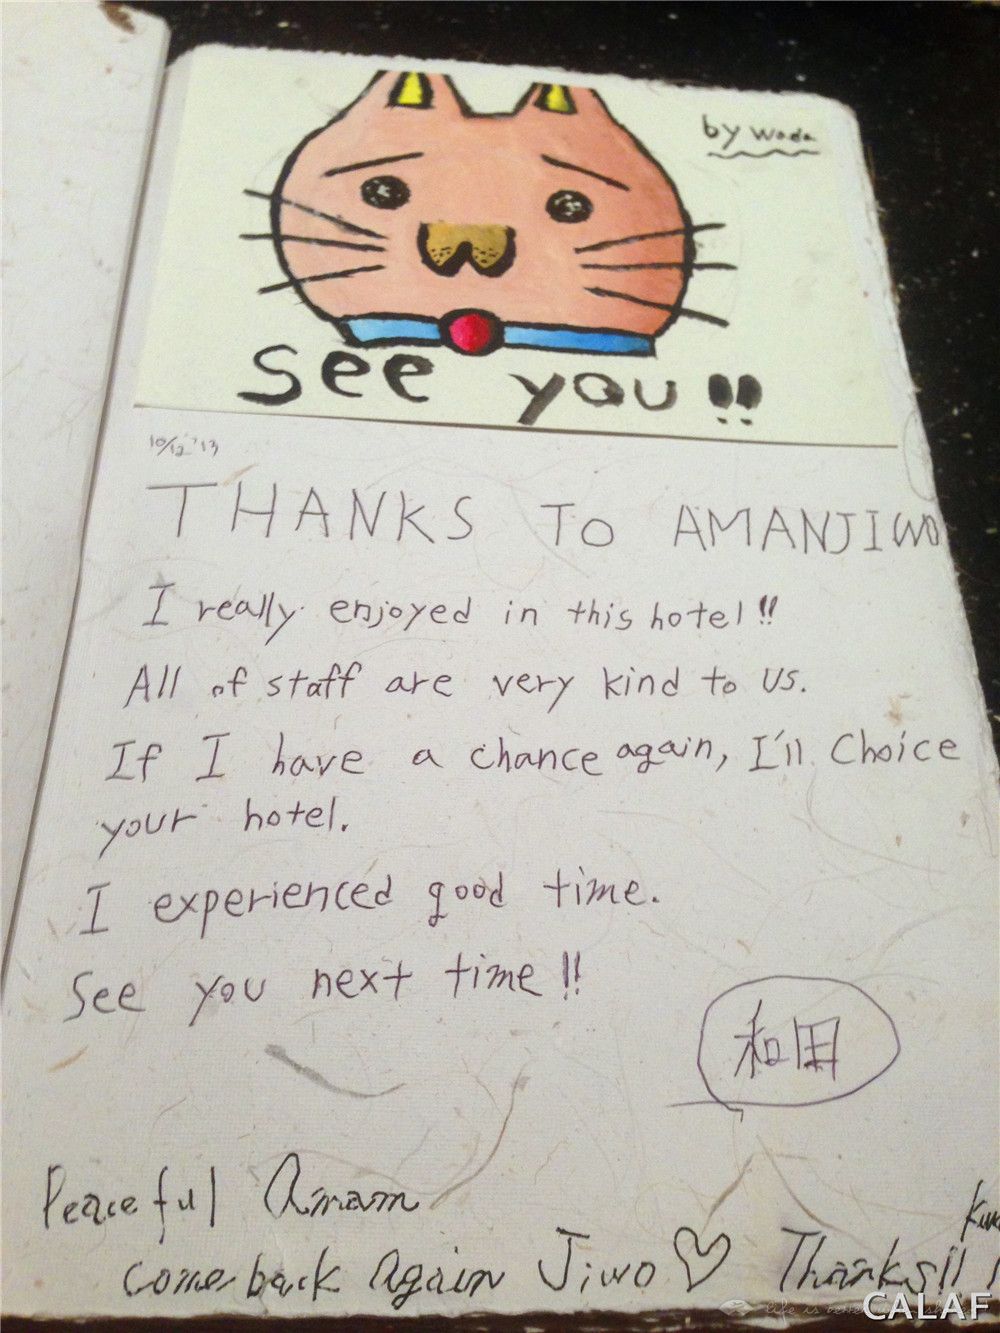 by Wada
See you!!
10/12 '13
THANKS TO AMANJIWO
I really enjoyed in this hotel!!
All of staff are very kind to us.
If I have a chance again, I'll Choice
your hotel.
I experienced good time.
See you next time!!
和田
Peaceful Amam
come back Again Jiwo♡ Thanks!!
CALAF